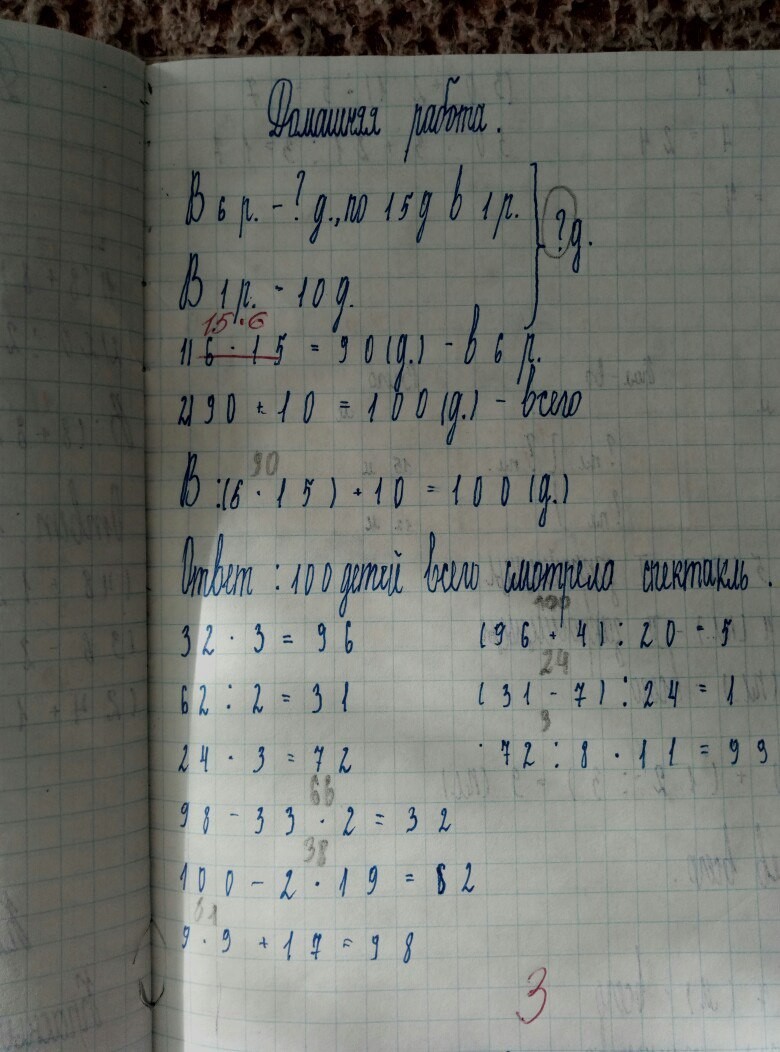 Домашняя работа.
В 6 р. - ? д., по 15 д в 1 р. } ? д.
В 1 р. - 10 д.
15 · 6
1) 6 · 15 = 90 (д.) - в 6 р.
2) 90 + 10 = 100 (д.) - всего
90
В :(6 · 15) + 10 = 100 (д.)
Ответ : 100 детей всего смотрела спектакль .
100
32 · 3 = 96 (96 + 4) : 20 = 5
24
62 : 2 = 31 (31 - 7) : 24 = 1
9
24 · 3 = 72 72 : 8 · 11 = 99
66
98 - 33 · 2 = 32
38
100 - 2 · 19 = 62
81
9 · 9 + 17 = 98
3